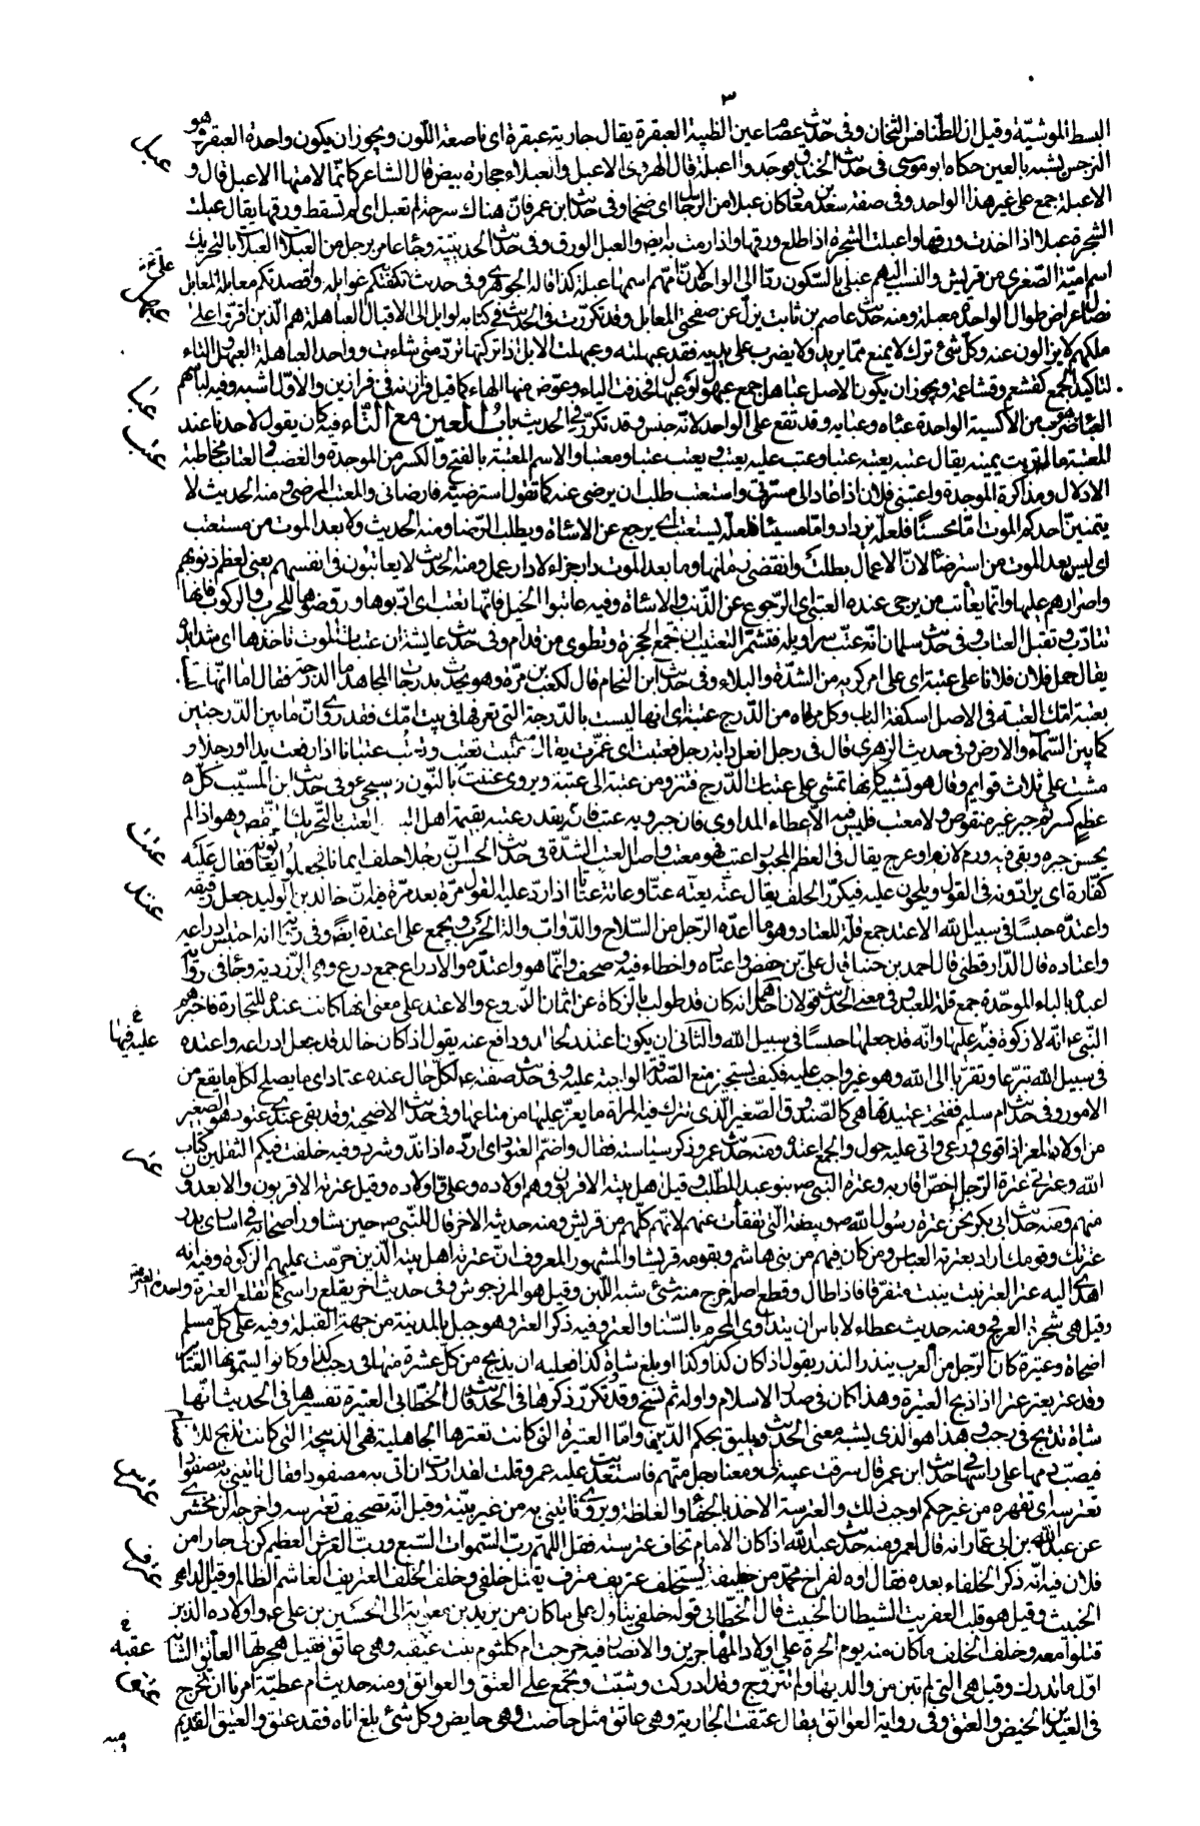 ٣
البسط الموشيّة وقيل ان الطنافس الثخان وفى حديث عصام عين الظبية العبقرة يقال جارية عبقرة اى ناصعة اللّون ويجوز ان يكون واحدة العبقر وهو
النرجس يشبه بالعين حكاه ابو موسى فى حديث الخندق فوجدوا اعبلة قال الهروى الاعبل والعبلاء حجارة بيض قال الشاعر كانّما لامتها الاعبل قال و
الاعبلة جمع على غير هذا الواحد وفى صفة سعد بن معاذ كان عبلا من الرجال اى ضخما وفى حديث ابن عمر فانّ هناك سرحة لم تعبل اى لم تسقط ورقها يقال عبلت
الشجرة عبلا اذا اخذت ورقها واعبلت الشجرة اذا طلع ورقها واذا رمت به ايض والعبل الورق وفى حديث الحديبية وجاء عامر برجل من العبلات العبلات بالتحريك
اسم اميّة الصّغرى من قريش والنسب اليهم عبلى بالسّكون ردّا الى الواحد لانّ امّهم اسمها عبلة كذا قاله الجوهرى وفى حديث تكنّفتكم غوايله واقصدتكم معابله المعابل
نصال عراض طوال الواحدة معبلة ومنه حديث عاصم بن ثابت تزلّ عن صفحتى المعابل وقد تكررت فى الحديث فى كتابه لوايل الى الاقيال العباهلة هم الّذين اقرّوا على
ملكهم لا يزالون عنه وكلّ شئ ترك لا يمنع ممّا يريد ولا يضرب على يديه فقد عبهلته وعبهلت الابل اذا تركتها ترد متى شاءت وواحد العباهلة عبهل والتاء
لتاكيد الجمع كقشعم وقشاعمة ويجوز ان يكون الاصل عباهيل جمع عبهول او عبهال فحذفت الياء وعوّض منها الهاء كما قيل فرازنة فى فرازين والاوّل اشبه وفيه لباسهم
العباء ضرب من الاكسية الواحدة عباة وعباية وقد تقع على الواحد لانّه جنس وقد تكرّر فى الحديث باب العين مع التاء فيه كان يقول لاحدنا عند
المعتبة ما له تربت يمينه يقال عتبه يعتبه عتبا وعتب عليه يعتب ويعتب عتبا ومعتبا والاسم المعتبة بالفتح والكسر من الموجدة والغضب والعتاب مخاطبة
الادلال ومذاكرة الموجدة واعتبنى فلان اذا عاد الى مسرّتى واستعتب طلب ان يرضى عنه كما تقول استرضيته فارضانى والمعتب المرضى ومنه الحديث لا
يتمنينّ احدكم الموت امّا محسنًا فلعلّه يزداد وامّا مسيئا فلعلّه يستعتب اى يرجع عن الاساءة ويطلب الرّضا ومنه الحديث ولا بعد الموت من مستعتب
اى ليس بعد الموت من استرضاء لانّ الاعمال بطلت وانقضى زمانها وما بعد الموت دار جزاء لا دار عمل ومنه الحديث لا يعاتبون فى انفسهم يعنى لعظم ذنوبهم
واصرارهم عليها وانّما يعاتب من يرجى عنده العتبى اى الرّجوع عن الذّنب والاساءة وفيه عاتبوا الخيل فانّها تعتب اى ادّبوها وروّضوها للحرب والركوب فانها
تتادّب وتقبل العتاب وفى حديث سلمان انّه عتّب سراويله فتشمّر التعتيب ان تجمع الحجزة وتطوى من قدام وفى حديث عايشة ان عتبات الموت تاخذها اى شدايده
يقال حمل فلان فلانا على عتبة اى على امر كريه من الشدّة والبلاء وفى حديث ابن النحام قال لكعب بن مرّة وهو يحدث بدرجات المجاهد ما الدرجة فقال اما انّها ليست
بعتبة امّك العتبة فى الاصل اسكفّة الباب وكل مرقاة من الدّرج عتبة اى انها ليست بالدّرجة التى تعرفها فى بيت امّك فقد روى انّ ما بين الدّرجتين
كما بين السّماء والارض وفى حديث الزهرى قال فى رجل انعل دابة رجل فعتبت اى غمزت يقال منه عتبت تعتب وتعتُب عتبانا اذا رفعت يدا او رجلا و
مشت على ثلاث قوايم وقال هو تشبيه كانّها تمشى على عتبات الدّرج فتنزو من عتبة الى عتبة ويروى عنتت بالنّون وسيجئ وفى حديث ابن المسيّب كلّ
عظم كسر ثم جبر غير منقوص ولا معتب فليس فيه الّا عطاء المداوى فان جبر وبه عتب فانّه يقدر عتبه بقيمة اهل البصر العتب بالتّحريك النقص وهو اذا لم
يحسن جبره وبقى فيه ورم لازم او عرج يقال فى العظم المجبور اعتب فهو معتب واصل العتب الشدّة فى حديث الحسن انّ رجلا حلف ايمانا فجعلوا يعاتّونه فقال عليه
كفّارة اى يرادّونه فى القول ويلحّون عليه فيكرّر الحلف يقال عتّه يعتّه عتّا وعاتّه عتاتا اذا ردّ عليه القول مرّة بعد مرّة فيه انّ خالد بن الوليد جعل رقيقه
واعتده حبسًا فى سبيل الله الاعتد جمع قلّة للعتاد وهو ما اعدّه الرّجل من السّلاح والدّواب والة الحرب ويجمع على اعتدة ايضًا وفى رواية انه احتبس ادراعه
واعتاده قال الدّارقطنى قال احمد بن حنبل قال علىّ بن حفص واعتاده واخطاء فيه وصحف وانّما هو واعتده والادراع جمع درع وهى الزّردية وجاء فى رواية
اعبده بالباء الموحّدة جمع قلّة للعبد وفى معنى الحديث قولان احدهما انه كان قد طولب بالزكاة عن اثمان الدّروع والاعتد على معنى انها كانت عنده للتجارة فاخبرهم
النّبى ء انّه لا زكوة فيه عليها وانّه قد جعلها حبسًا فى سبيل الله والثّانى ان يكون اعتذر لخالد ودافع عنه يقول اذا كان خالد قد جعل ادراعه واعتده
فى سبيل الله تبرّعا وتقرّبا الى الله وهو غير واجب عليه فكيف يستجيز منع الصّدقة الواجبة عليه وفى حديث صفته ء لكلّ حال عنده عتاد اى ما يصلح لكلّ ما يقع من
الامور وفى حديث ام سليم ففتحت عتيدتها هى كالصّندوق الصّغير الّذى تترك فيه المراة ما يعزّ عليها من متاعها وفى حديث الاضحية وقد بقى عندى عتود هو الصّغير
من اولاد المعز اذا قوى ورعى واتى عليه حول والجمع اعتدة ومنه حديث عمر وذكر سياسته فقال واضمّ العتود اى اردّه اذا ندّ وشرد وفيه خلّفت فيكم الثقلين كتاب
الله وعترتى عترة الرّجل اخصّ اقاربه وعترة النبى ص بنو عبد المطّلب وقيل اهل بيته الاقربون وهم اولاده وعلىّ واولاده وقيل عترته الاقربون والابعدون
منهم ومنه حديث ابى بكر نحن عترة رسول الله ص وبيضته الّتى تفقأت عنهم لانّهم كلّهم من قريش ومنه حديثه الاخر قال للنّبى ص حين شاور اصحابه فى اسارى بدر
عترتك وقومك اراد بعترته العباس ومن كان فيهم من بنى هاشم وبقومه قريشا والمشهور المعروف انّ عترته اهل بيته الّذين حرّمت عليهم الزكوة وفيه انه
اهدى اليه عتر العتر نبت ينبت متفرّقا فاذا طال وقطع اصله خرج منه شئ شبه اللّبن وقيل هو المرزجوش وفى حديث اخر يقلع راسى كما تقلع العترة واحدة العتر
وقيل هى شجرة العرفج ومنه حديث عطاء لا باس ان يتداوى المحرم بالسّنا والعتر وفيه ذكر العتر وهو جبل بالمدينة من جهة القبلة وفيه على كلّ مسلم
اضحاة وعتيرة كان الرّجل من العرب ينذر النذر يقول اذا كان كذا وكذا او بلغ شاؤه كذا فعليه ان يذبح من كلّ عشرة منها فى رجب كذا وكانوا يسمّونها العتاير
وقد عتر يعتر عترا اذا ذبح العتيرة وهذا كان فى صدر الاسلام واوله ثم نسخ وقد تكرّر ذكرها فى الحديث قال الخطّابى العتيرة تفسيرها فى الحديث انّها
شاة تذبح فى رجب هذا هو الّذى يشبه معنى الحديث ويليق بحكم الدّين وامّا العتيرة التى كانت تعترها الجاهلية فهى الذبيحة التى كانت تذبح للاصنام
فيصبّ دمها على راسها فى حديث ابن عمر قال سرقت عيبة لى ومعنا رجل متّهم فاستعديت عليه عمر وقلت لقد اردت ان اتى به مصفودا فقال تاتينى به مصفودا
تعترسه اى تقهره من غير حكم اوجب ذلك والعترسة الاخذ بالجفاء والغلظة ويروى تاتينى به من غير بيّنة وقيل انّه تصحيف تعترسه واخرجه الزمخشرى
عن عبد الله بن ابى عمار انه قال لعمر ومنه حديث عبد الله اذا كان الامام تخاف عترسته فقل اللهم ربّ السّموات السّبع وربّ العرش العظيم كن لى جارا من
فلان فيه انّه ذكر الخلفاء بعده فقال اوّه لفراخ محمّد من خليفة يستخلف عتريف مترف يقتل خلفى وخلف الخلف العتريف الغاشم الظالم وقيل الداهى
الخبيث وقيل هو قلب العفريت الشيطان الخبيث قال الخطّابى قوله خلفى يتاوّل على ما كان من يزيد بن معاوية الى الحسين بن على ء واولاده الذين
قتلوا معه وخلف الخلف ما كان منه يوم الحرة على اولاد المهاجرين والانصار فيه خرجت ام كلثوم بنت عقبة وهى عاتق فقبل هجرتها العاتق الشّابّة
اوّل ما تدرك وقيل هى التى لم تبن من والديها ولم تتزوّج وقد ادركت وشبّت ويجمع على العتق والعواتق ومنه حديث ام عطيّة امرنا ان نخرج
فى العيدين الحيض والعتق وفى رواية العواتق يقال عتقت الجارية وهى عاتق مثل حاضت وهى حايض وكل شئ بلغ اناه فقد عتق والعتيق القديم
عبل
عبهل
عبا
عتب
عتت
عتد
عليه فيها
عتر
عترس
عترف
عقبة
عتق